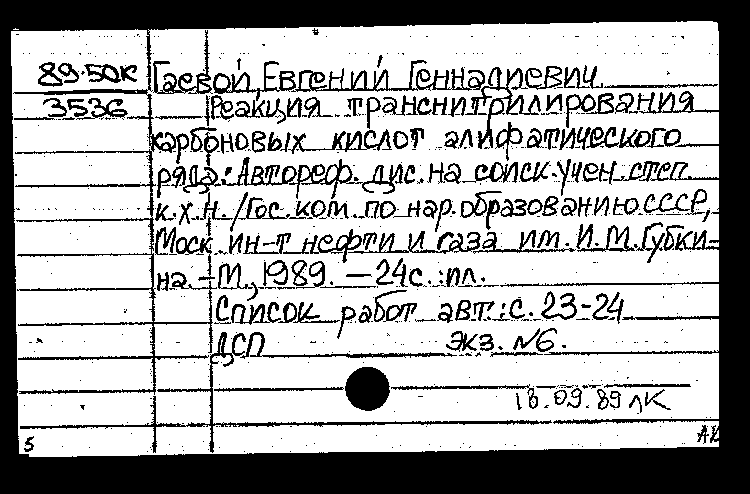 89-50к Гаевой, Евгений Геннадиевич.
3536 Реакция транснитрилирования
карбоновых кислот алифатического
ряда: Автореф. дис. на соиск. учен. степ.
к.х.н. /Гос. ком. по нар. образованию СССР,
Моск. ин-т нефти и газа им. И.М.Губки-
на. - М., 1989. - 24с.: пл.
Список работ авт.: с. 23-24
ДСП экз. №6.
18.09.89 ЛК
5